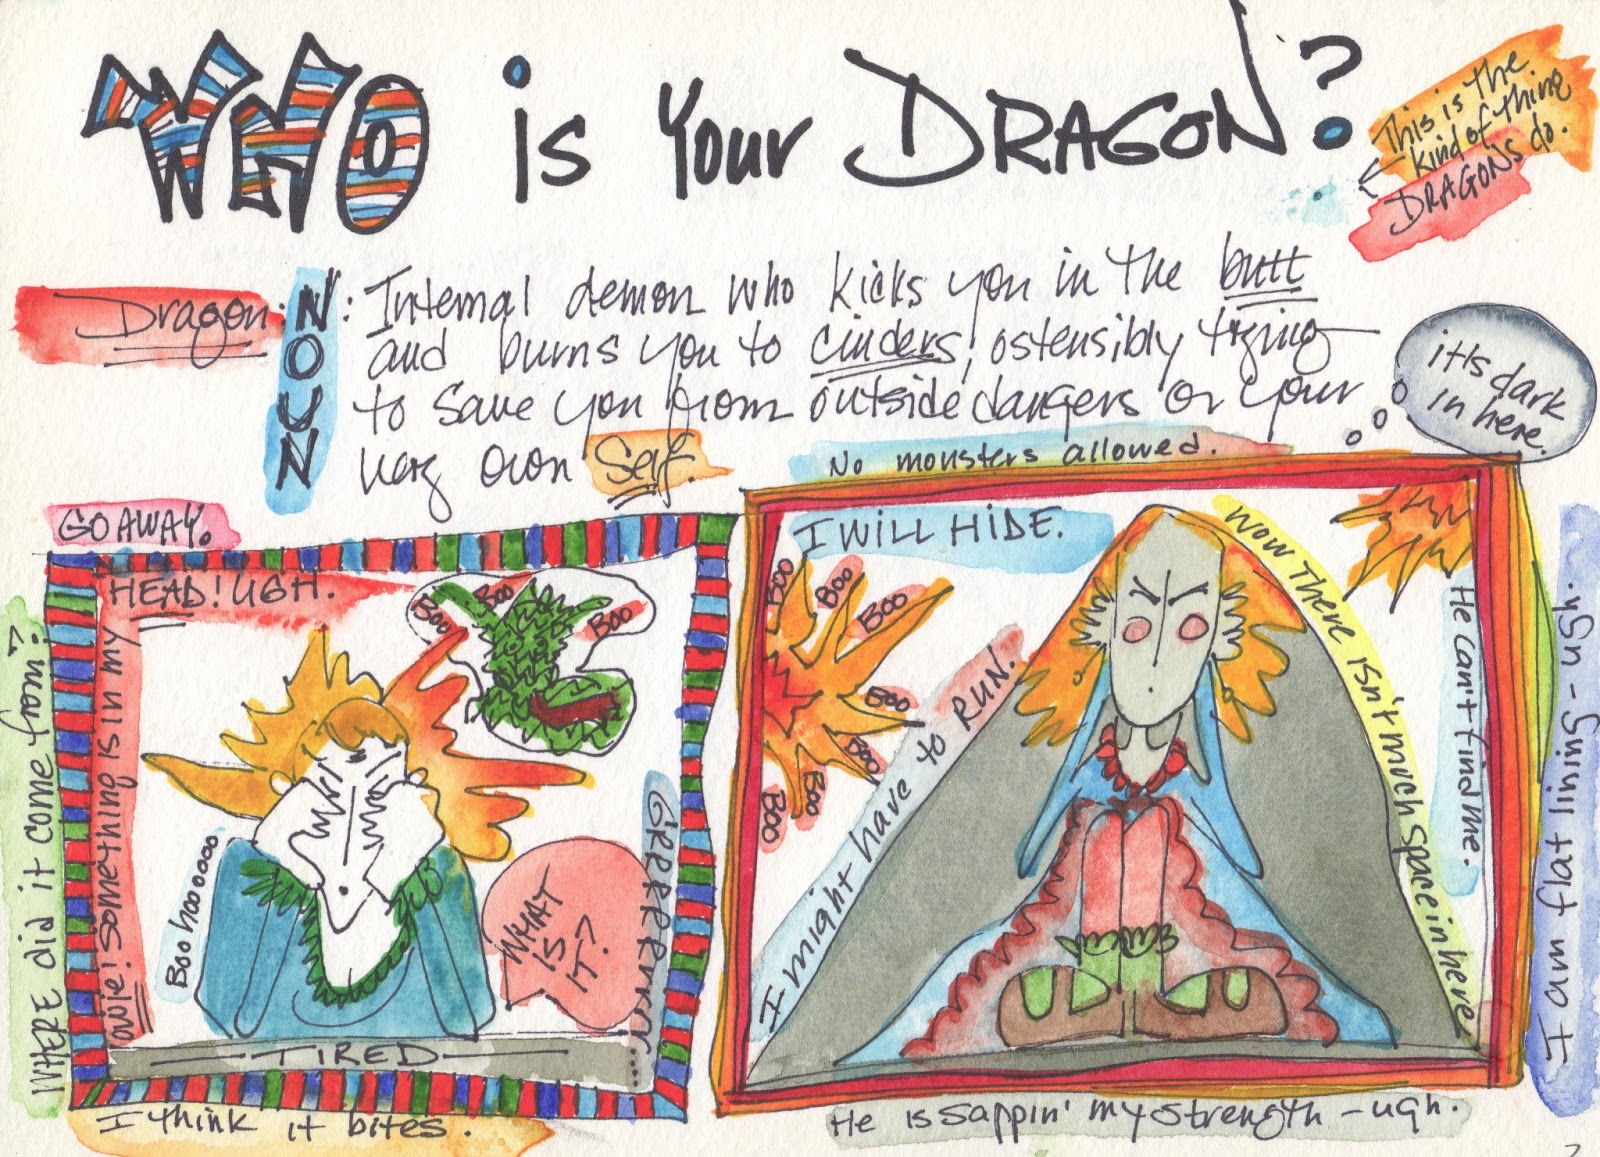 WHO is Your DRAGON?
This is the
kind of thing
DRAGONS do.
Dragon: NOUN: Internal demon who kicks you in the butt
and burns you to cinders, ostensibly trying
to save you from outside dangers or your
very own Self.
it's dark
in here.
No monsters allowed.
GO AWAY.
WHERE did it come from?
owie! Something is in my
HEAD! UGH.
Boo
Boo
Boo
Boo hooooooo
WHAT
IS
IT?
TIRED
I think it bites.
I WILL HIDE.
Boo
Boo
Boo
Boo
Boo
Boo
Boo
I might have to RUN.
Wow There isn't much space in here
He can't find me.
I am flat lining - ugh.
He is sappin' my strength - ugh.